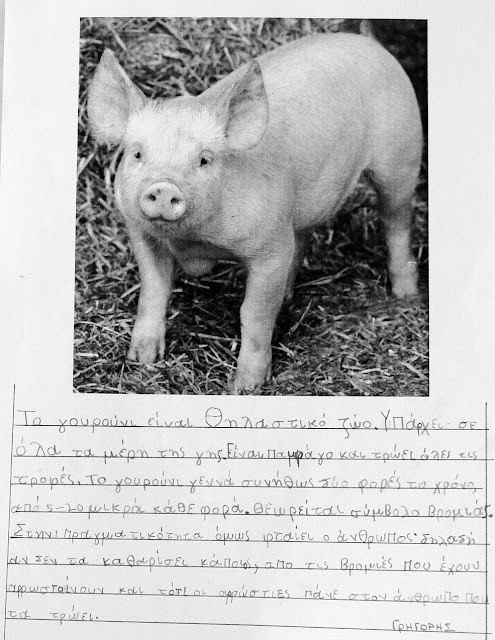 Το γουρούνι είναι Θηλαστικό ζώο. Υπάρχει σε
όλα τα μέρη της γης. Είναι παμφάγο και τρώει όλει τις
τροφές. Το γουρούνι γεννά συνήθως δύο φορές το χρόνο,
από 5-20 μικρά κάθε φορά. Θεωρείται σύμβολο βρομιάς.
Στην πραγματικότητα όμως φταίει ο άνθρωπος· δηλαδή
αν δεν τα καθαρίσει κάποιος, απο τις βρομιές που έχουν
αρωσταίνουν και τότε οι αρρώστιες πάνε στον άνθρωπο που
τα τρώει.
ΓΡΗΓΟΡΗΣ